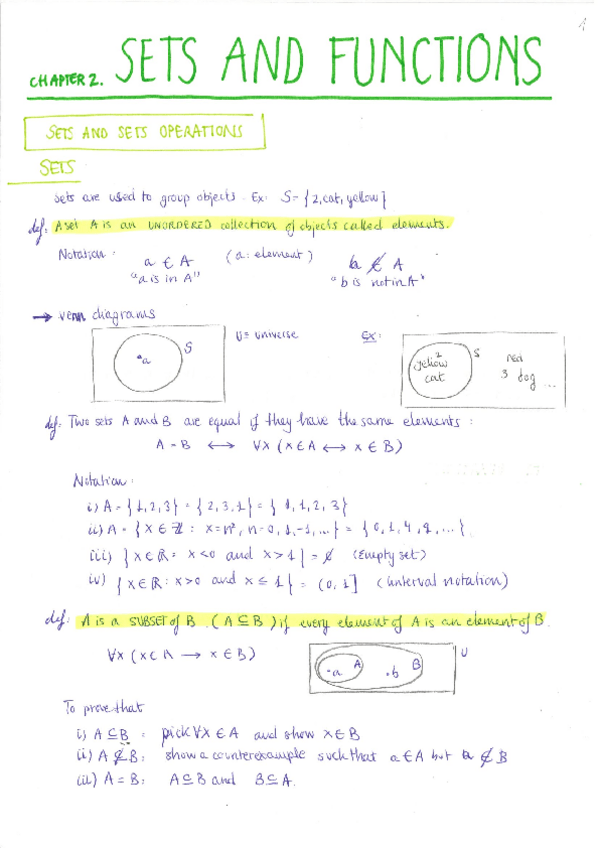 1
CHAPTER 2. SETS AND FUNCTIONS
SETS AND SETS OPERATIONS
SETS
Sets are used to group objects. Ex: S = {2, cat, yellow}
def: A set A is an UNORDERED collection of objects called elements.
Notation: a ∈ A (a: element) b ∉ A
"a is in A" "b is not in A"
→ Venn diagrams
•a S U = universe Ex: 2 yellow cat S red 3 dog ...
def: Two sets A and B are equal if they have the same elements:
A = B ↔ ∀x (x ∈ A ↔ x ∈ B)
Notation:
i) A = {1, 2, 3} = {2, 3, 1} = {1, 1, 2, 3}
ii) A = {x ∈ ℤ : x = n², n = 0, 1, -1, ...} = {0, 1, 4, 9, ...}
iii) {x ∈ ℝ : x < 0 and x > 1} = ∅ (Empty set)
iv) {x ∈ ℝ : x > 0 and x ≤ 1} = (0, 1] (interval notation)
def: A is a SUBSET of B (A ⊆ B) if every element of A is an element of B.
∀x (x ∈ A → x ∈ B) •a A •b B U
To prove that
i) A ⊆ B : pick ∀x ∈ A and show x ∈ B
ii) A ⊈ B : show a counterexample such that a ∈ A but a ∉ B
iii) A = B : A ⊆ B and B ⊆ A.